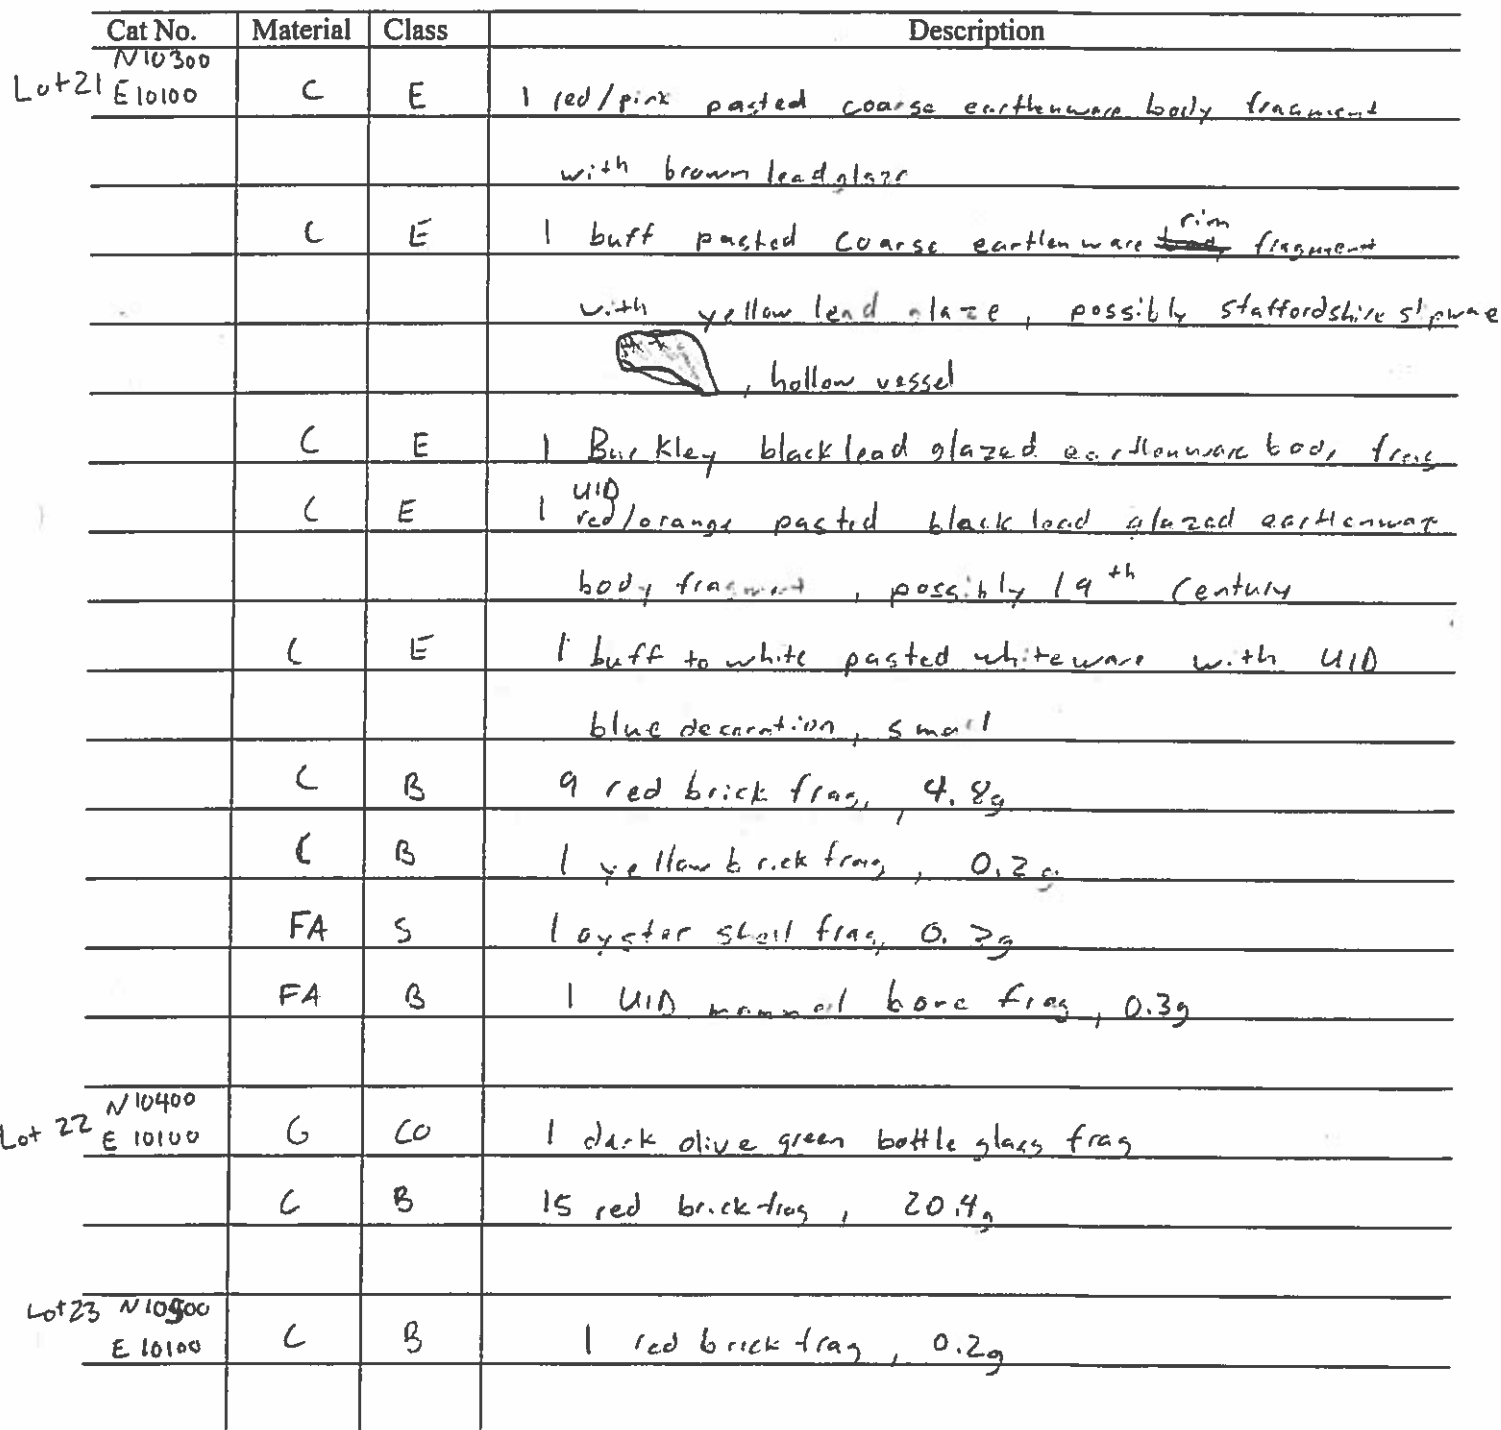 Cat No. Material Class Description
N10300
Lot 21 E10100 C E 1 red/pink pasted coarse earthenware body fragment
with brown lead glaze
C E 1 buff pasted coarse earthenware rim fragment
with yellow lead glaze, possibly staffordshire slipware
, hollow vessel
C E 1 Buckley black lead glazed earthenware body frag
UID
C E 1 red/orange pasted black lead glazed earthenware
body fragment, possibly 19th Century
C E 1 buff to white pasted whiteware with UID
blue decoration, small
C B 9 red brick frag, 4.8g
C B 1 yellow brick frag, 0.2g
FA S 1 oyster shell frag, 0.2g
FA B 1 UID mammal bone frag, 0.3g
N10400
Lot 22 E 10100 G CO 1 dark olive green bottle glass frag
C B 15 red brick frag, 20.4g
Lot 23 N10500
E 10100 C B 1 red brick frag, 0.2g